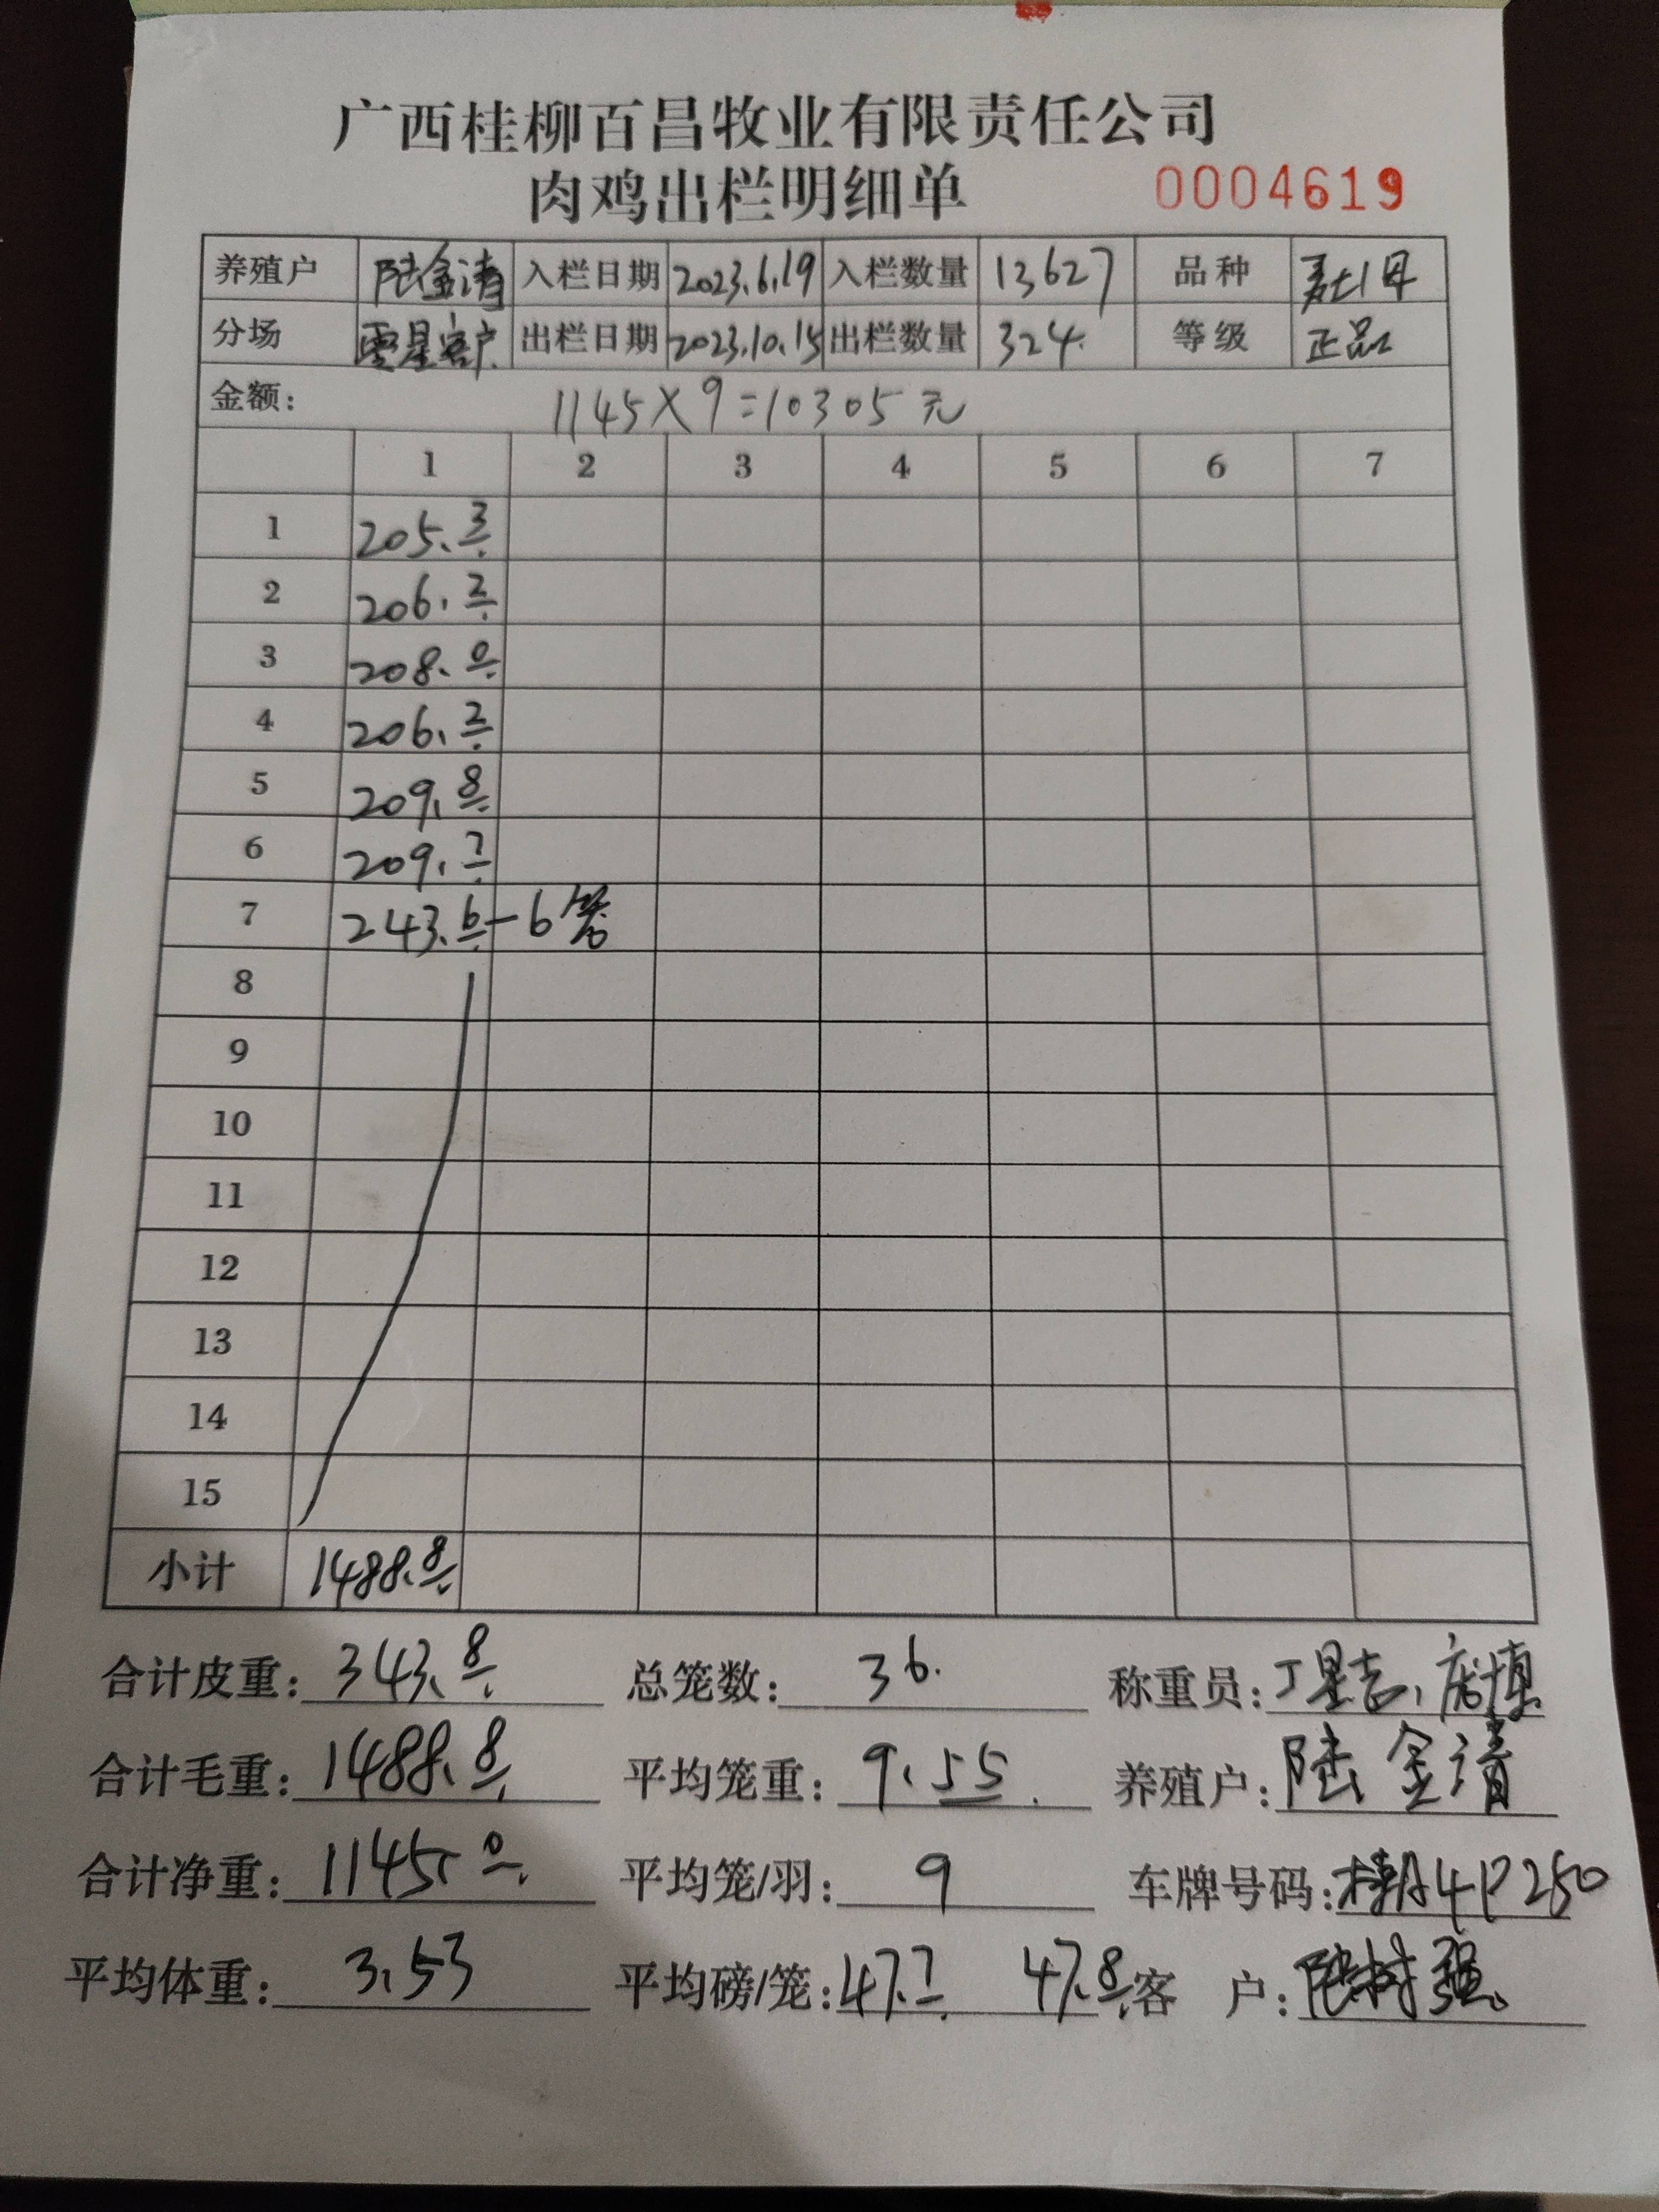 广西桂柳百昌牧业有限责任公司
肉鸡出栏明细单 0004619
养殖户 陆金清 入栏日期 2023.6.19 入栏数量 13627 品种
分场 零星客户 出栏日期 2023.10.15 出栏数量 324. 等级 正品
金额: 1145×9=10305元
1 2 3 4 5 6 7
1 205.3
2 206.2
3 208.0
4 206.2
5 209.8
6 209.7
7 243.6-6笼
8
9
10
11
12
13
14
15
小计 1488.8
合计皮重: 343.8 总笼数: 36. 称重员: 丁星志,
合计毛重: 1488.8 平均笼重: 9.55. 养殖户: 陆金清
合计净重: 1145.0 平均笼/羽: 9 车牌号码: 桂A4P250
平均体重: 3.53 平均磅/笼: 47.7 47.8 客 户: 陆树强